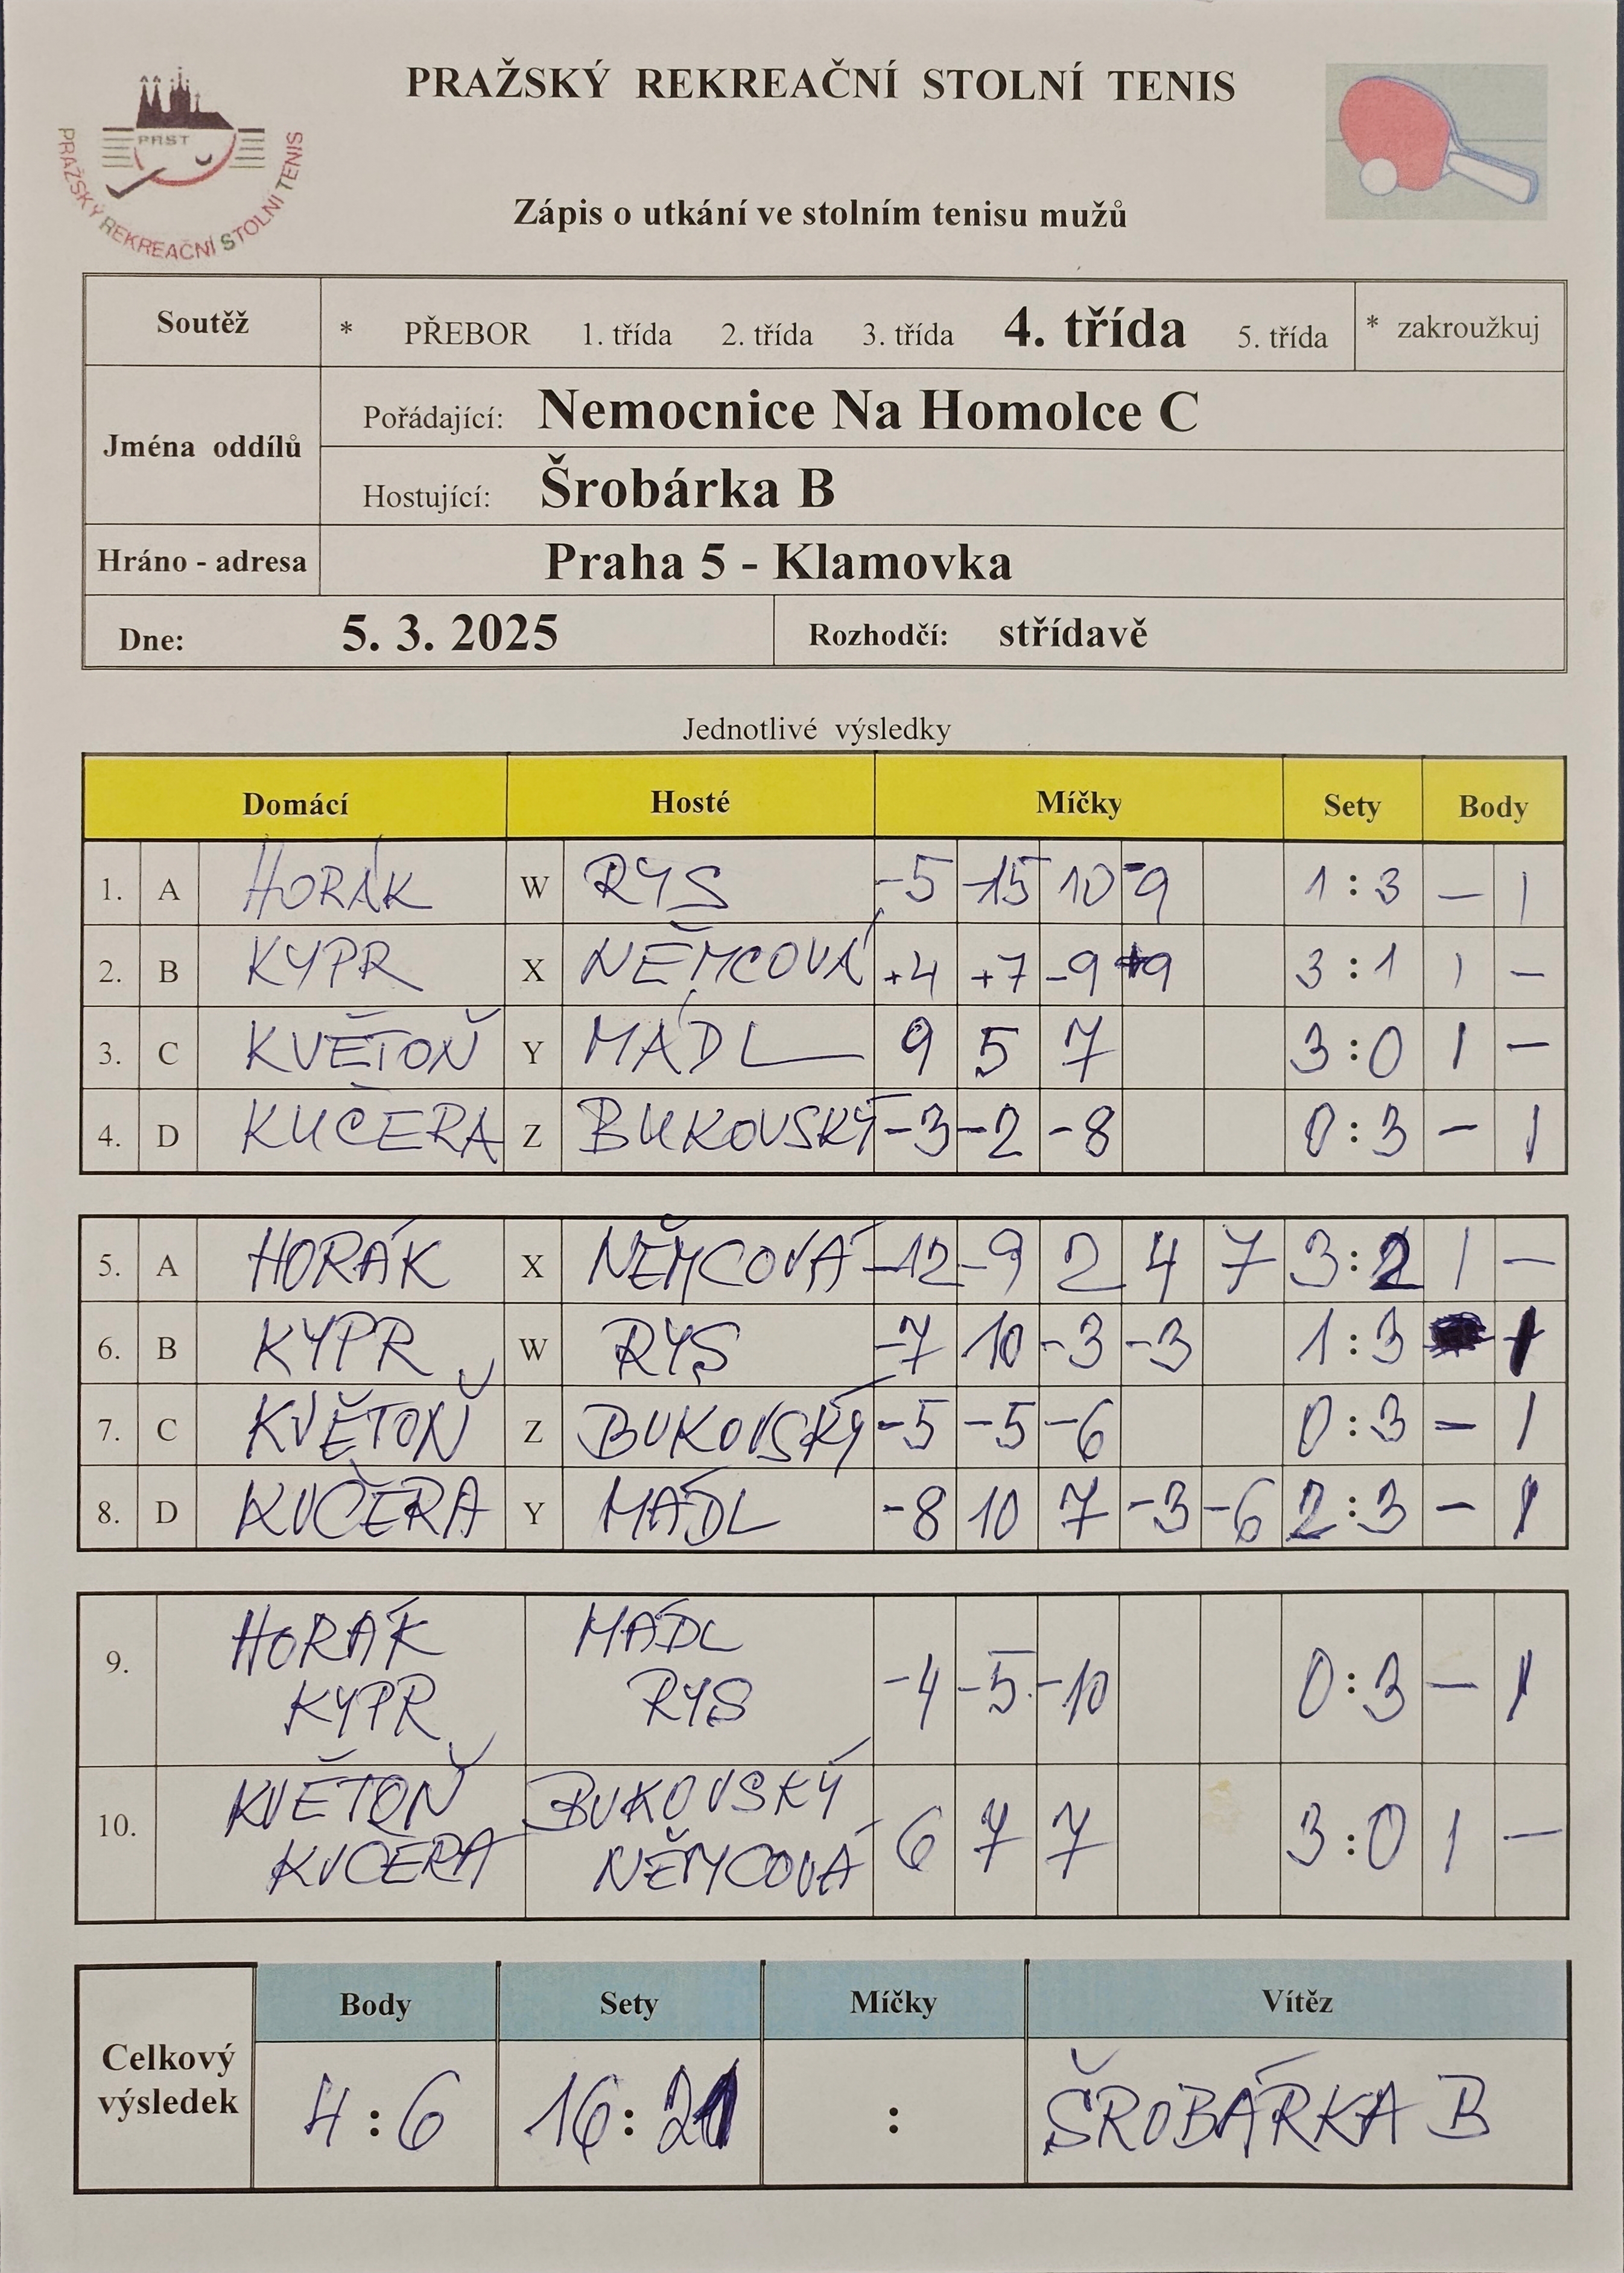 PRAŽSKÝ REKREAČNÍ STOLNÍ TENIS
PRST
PRAŽSKÝ REKREAČNÍ STOLNÍ TENIS
Zápis o utkání ve stolním tenisu mužů
Soutěž * PŘEBOR 1. třída 2. třída 3. třída 4. třída 5. třída * zakroužkuj
Jména oddílů
Pořádající: Nemocnice Na Homolce C
Hostující: Šrobárka B
Hráno - adresa Praha 5 - Klamovka
Dne: 5. 3. 2025 Rozhodčí: střídavě
Jednotlivé výsledky
Domácí Hosté Míčky Sety Body
1. A HORÁK W RYS -5 -15 10 -9 1 : 3 — 1
2. B KYPR X NĚMCOVÁ +4 +7 -9 +9 3 : 1 1 —
3. C KVĚTOŇ Y MÁDL 9 5 7 3 : 0 1 —
4. D KUČERA Z BUKOVSKÝ -3 -2 -8 0 : 3 — 1
5. A HORÁK X NĚMCOVÁ -12 -9 2 4 7 3 : 2 1 —
6. B KYPR W RYS -7 10 -3 -3 1 : 3 1
7. C KVĚTOŇ Z BUKOVSKÝ -5 -5 -6 0 : 3 — 1
8. D KUČERA Y MÁDL -8 10 7 -3 -6 2 : 3 — 1
HORÁK MÁDL
9. -4 -5 -10 0 : 3 — 1
KYPR RYS
KVĚTOŇ BUKOVSKÝ
10. 6 7 7 3 : 0 1 —
KUČERA NĚMCOVÁ
Body Sety Míčky Vítěz
Celkový
výsledek
4 : 6 16 : 21 : ŠROBÁRKA B